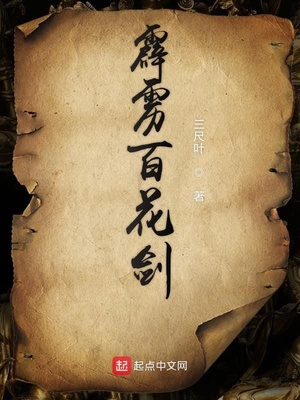 霹雳百花剑
三尺叶 ◎ 著
起 起点中文网